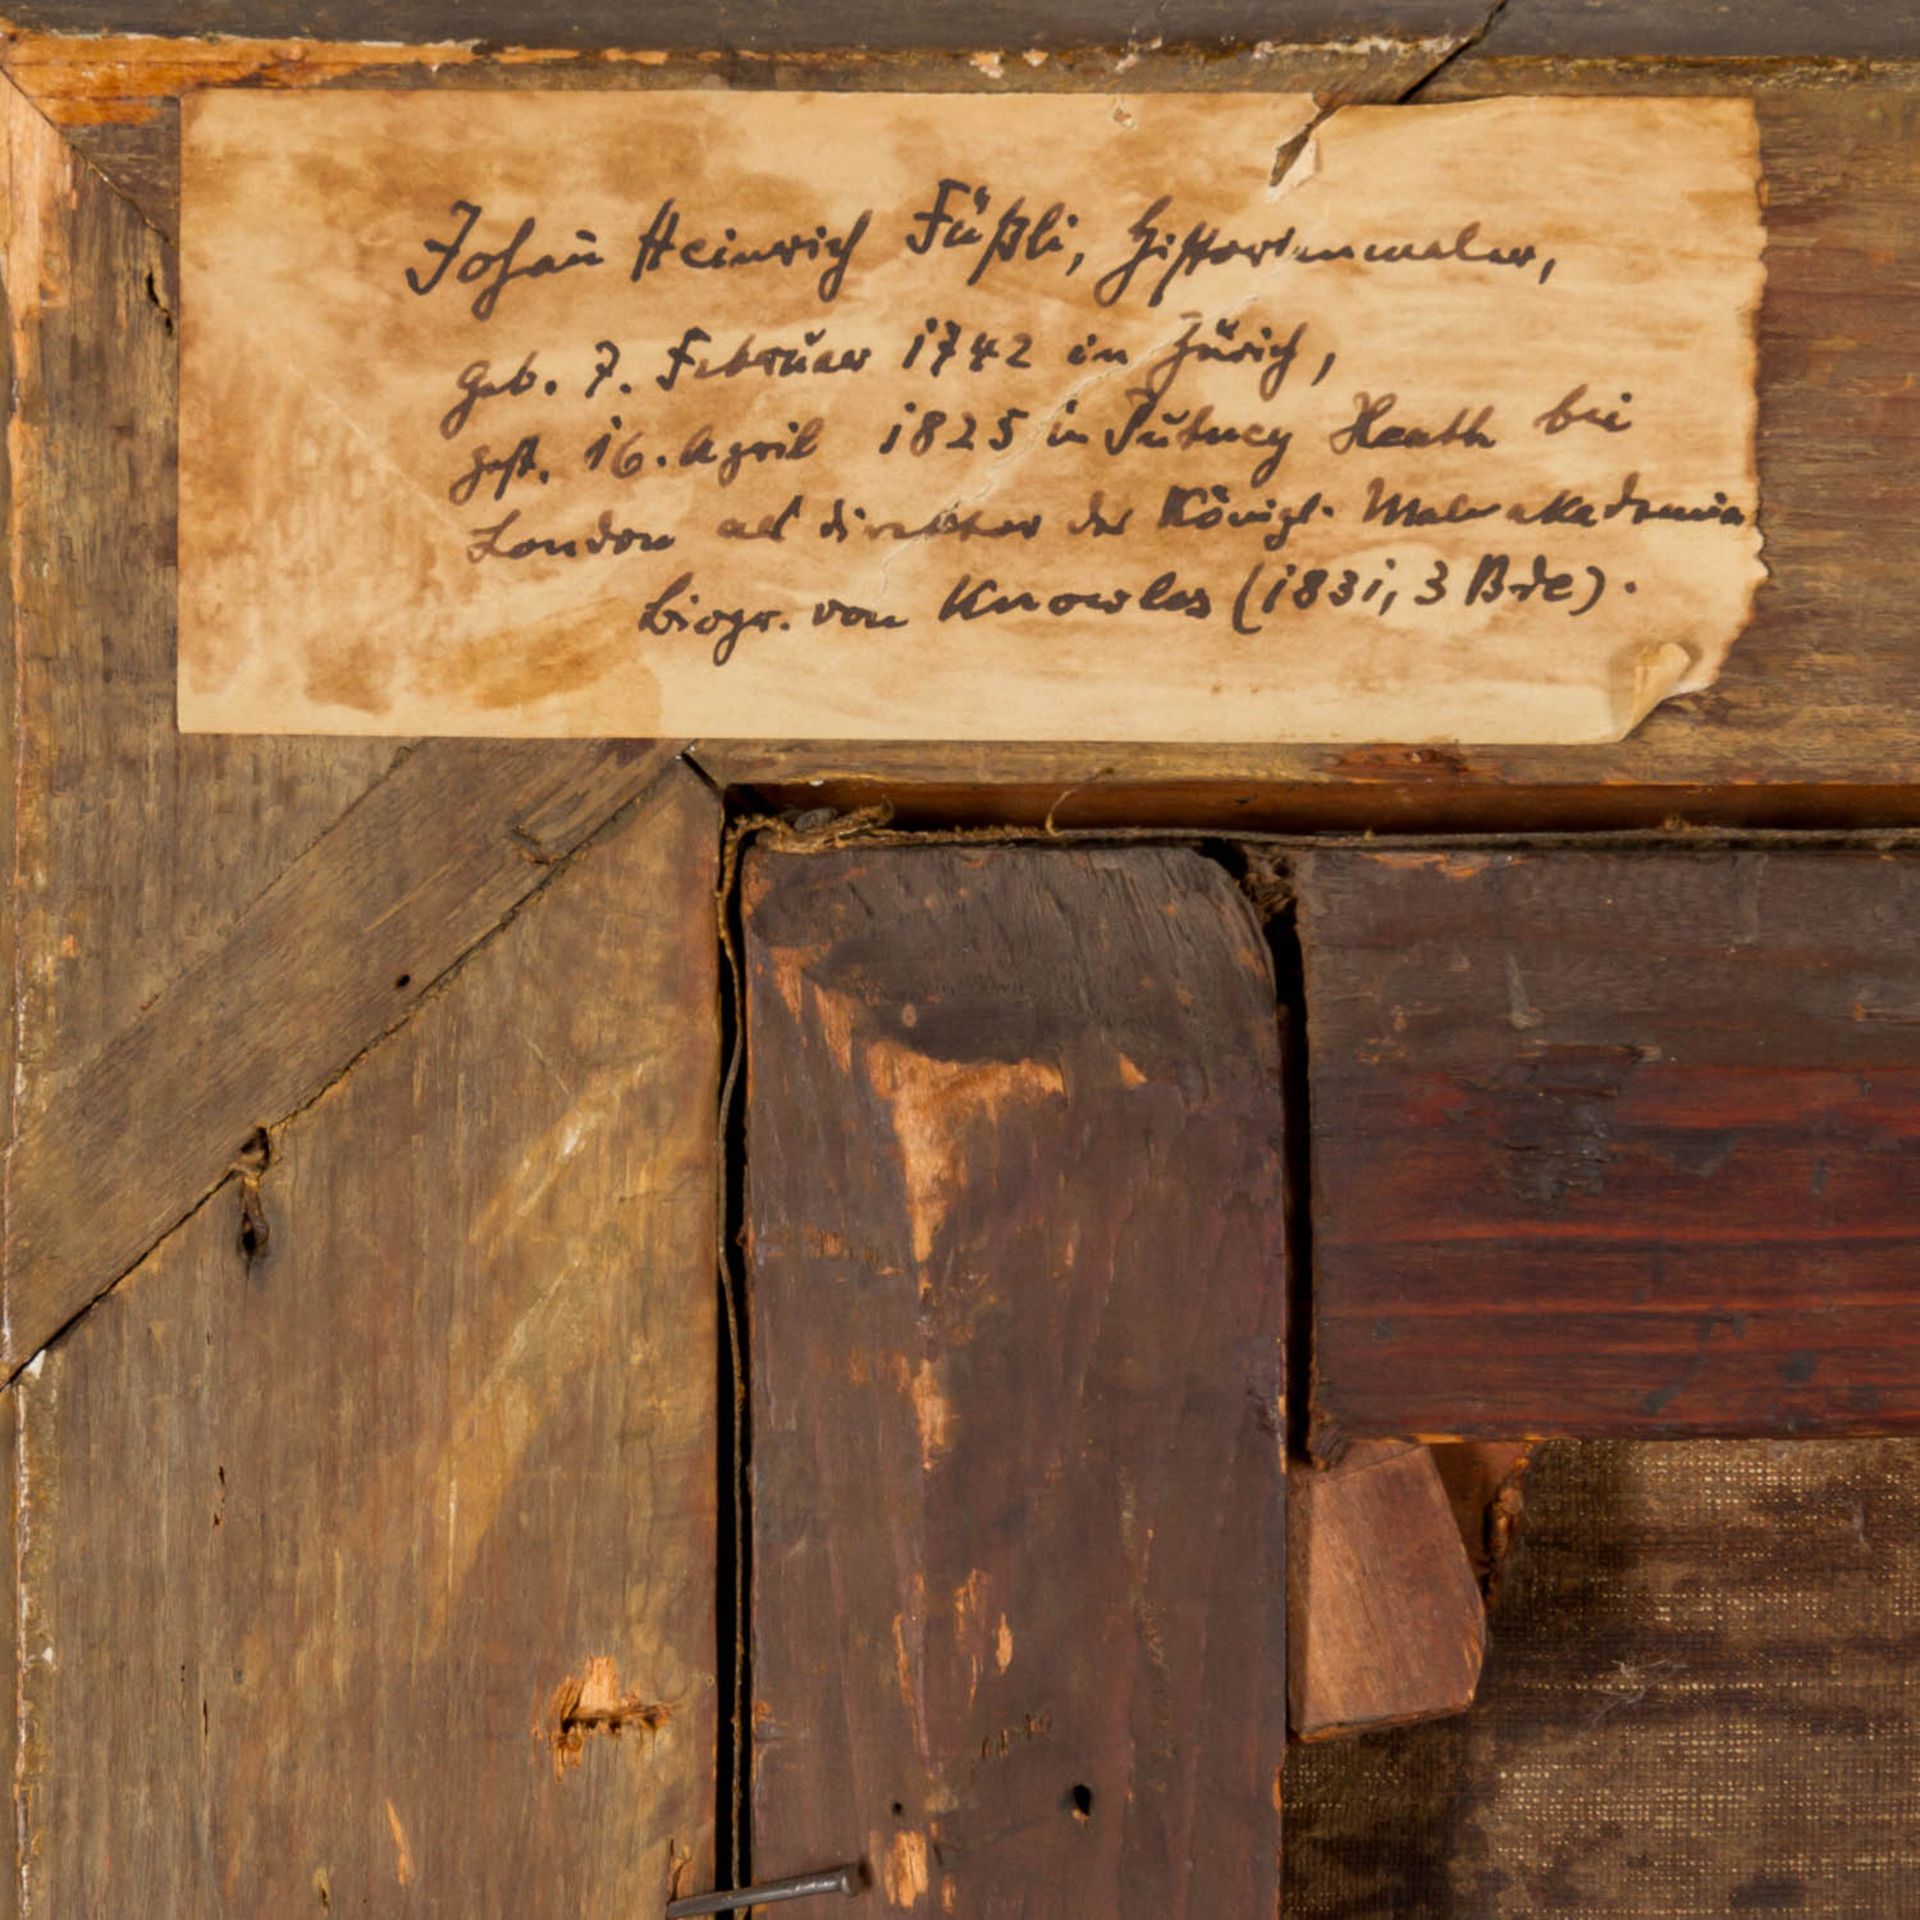 Johañ Heinrich Füßli, Historienmaler,
geb. 7. Februar 1742 in Zürich,
gest. 16. April 1825 in Putney Heath bei
London als direktor der Königl. Malerakademie
biogr. von Knowles (1831, 3 Bde).